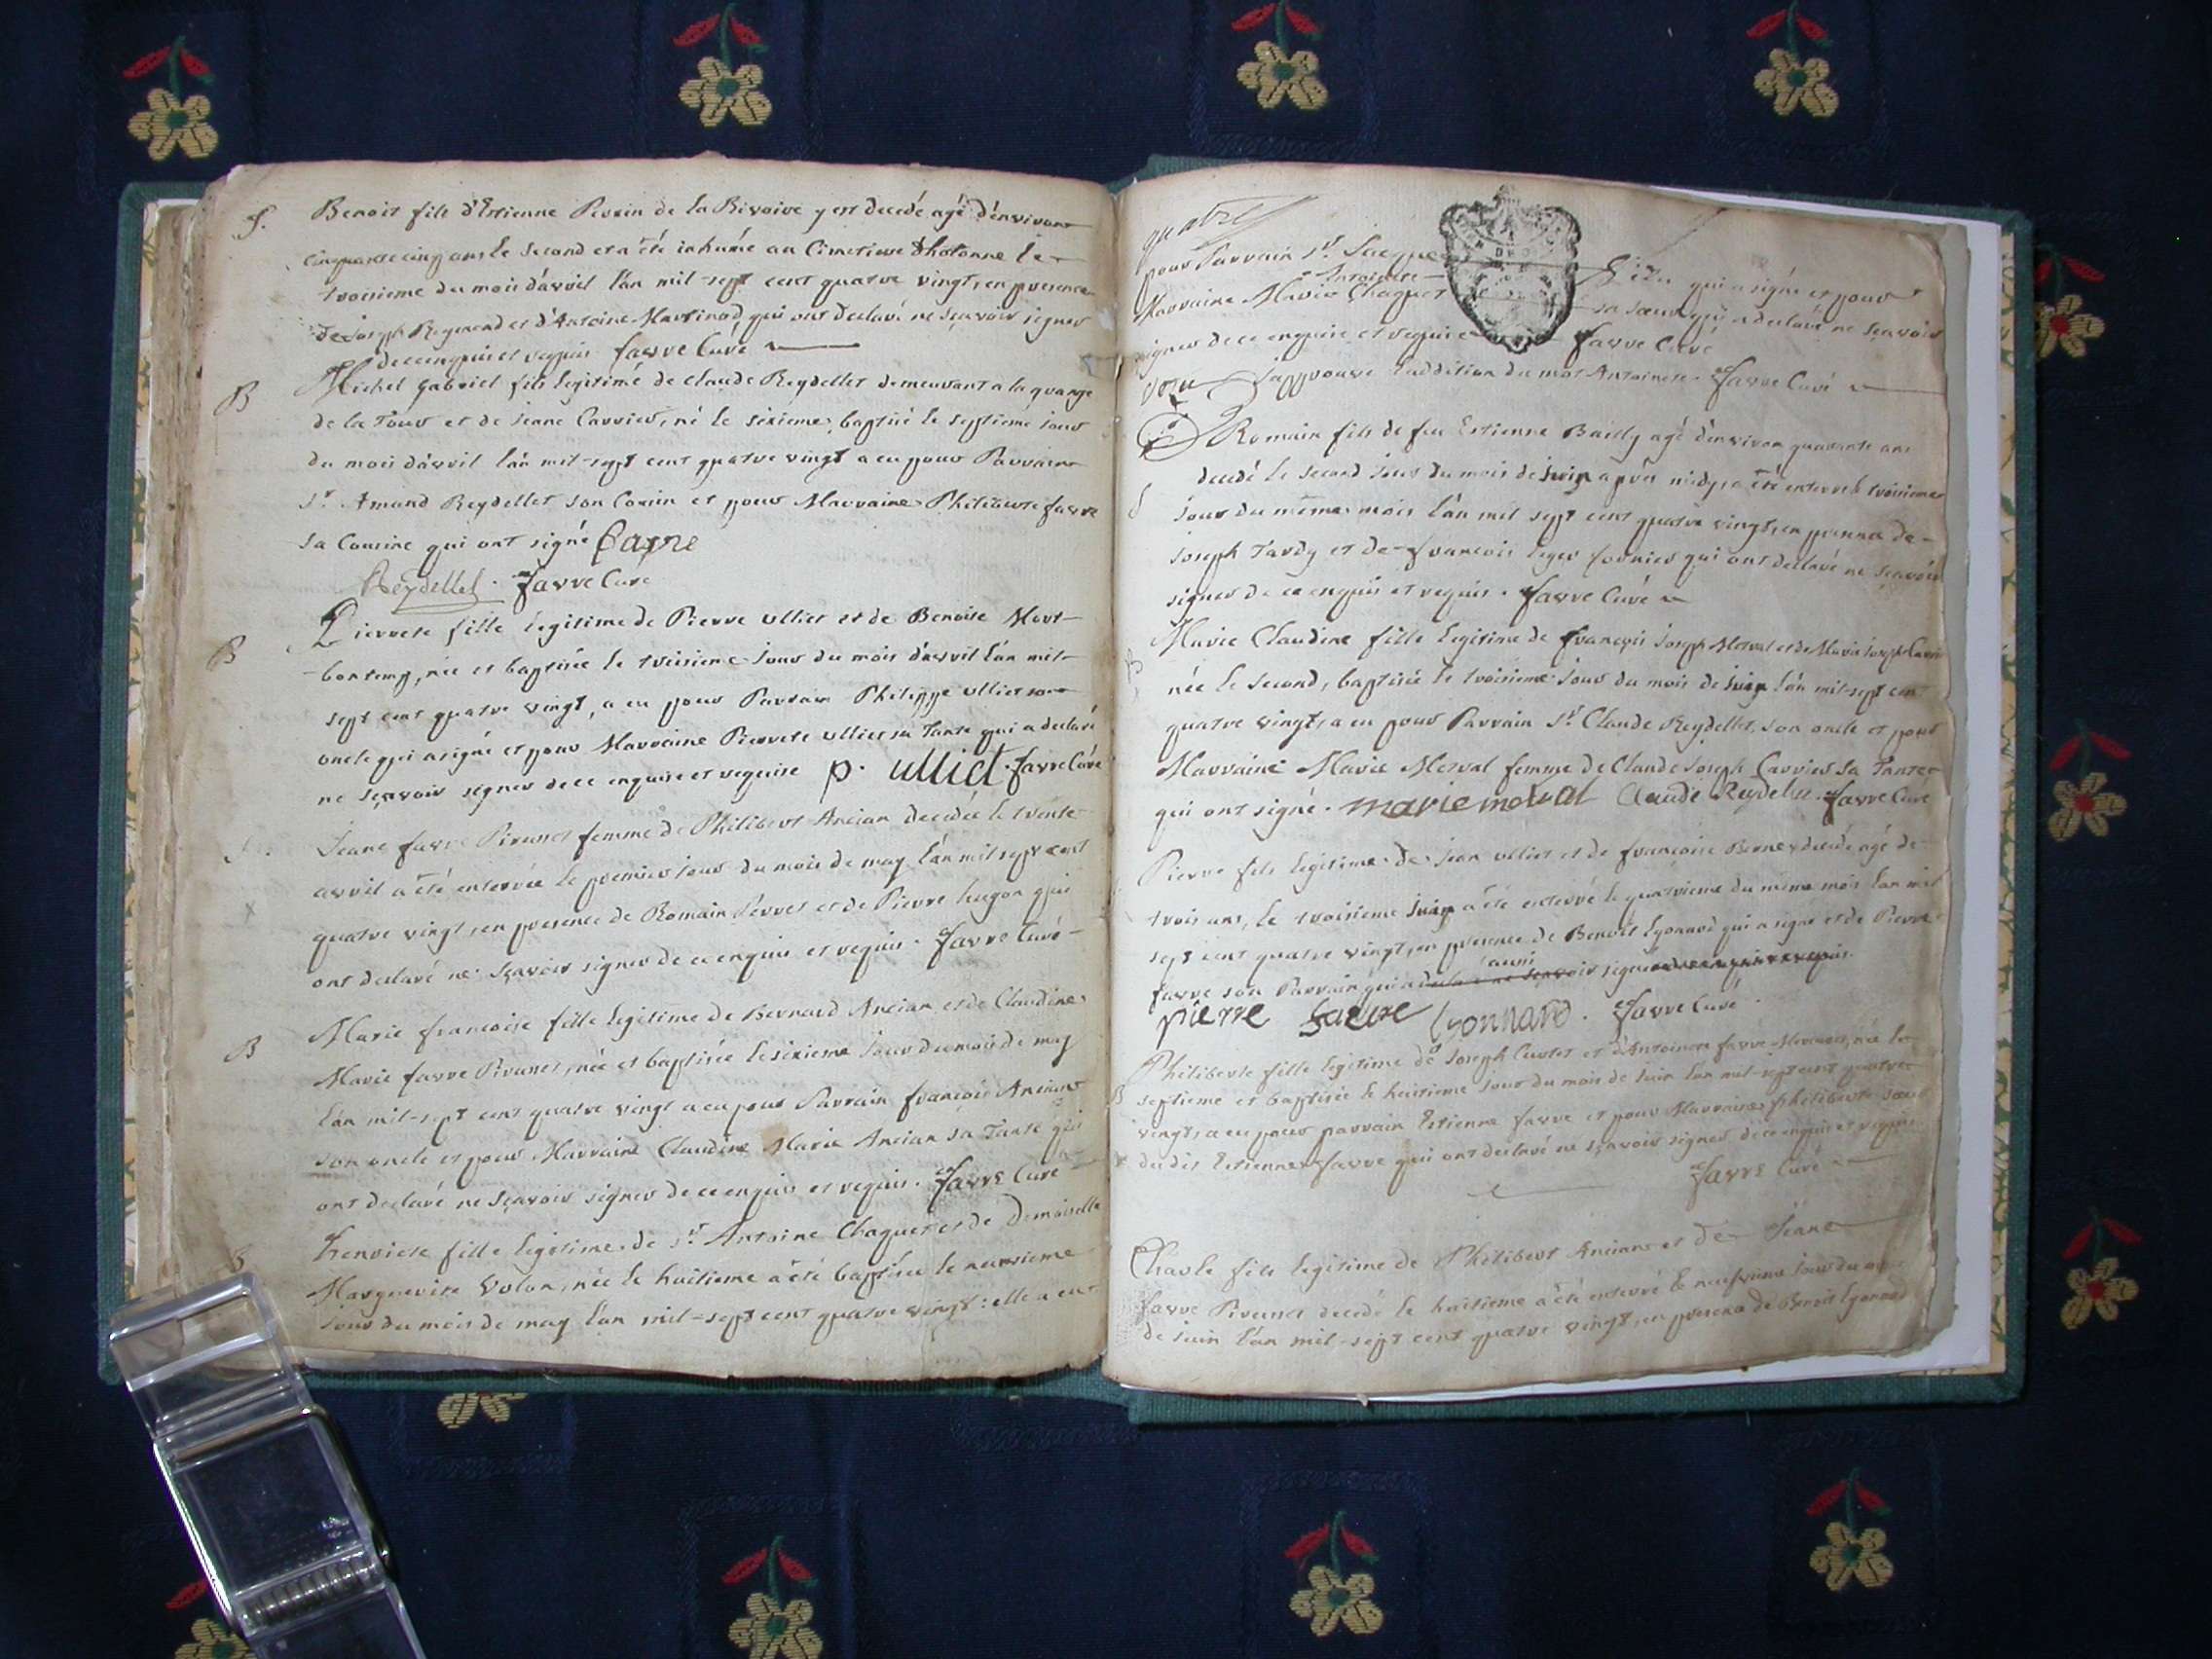 S. Benoit fils d'Estienne Perrin de la Rivoire y est decedé agé d'environ
cinquante cinq ans le second et a été inhumé au Cimetiere d'hotonne le
troisieme du mois d'avril l'an mil-sept cent quatre vingt, en presence
de Joseph Reymond et d'Antoine Martinod, qui ont declaré ne sçavoir signer
de ce enquis et requis favre Curé
B Michel Gabriel fils legitime de Claude Reydellet demeurant a la grange
de la Tour et de Jeane Carrier, né le sixieme, baptisé le septieme jour
du mois d'avril l'an mil-sept cent quatre vingt a eu pour Parrain
sr. Amand Reydellet son Cousin et pour Marraine Philiberte favre
sa Cousine qui ont signé favre
Reydellet. favre Curé
B Pierrete fille légitime de Pierre ulliet et de Benoite Mort-
-bontemp, née et baptisée le troisieme jour du mois d'avril l'an mil-
sept cent quatre vingt, a eu pour Parrain Philippe ulliet son
oncle qui a signé et pour Marraine Pierrete ulliet sa Tante qui a declaré
ne sçavoir signer de ce enquise et requise p. ulliet. favre Curé
S. Jeane favre Pirunet femme de Philibert Ancian decedée le trente
avril a été enterrée le premier jour du mois de may l'an mil sept cent
quatre vingt, en presence de Romain Perret et de Pierre hugon qui
ont declaré ne sçavoir signer de ce enquis et requis. favre Curé
B Marie francoise fille legitime de Bernard Ancian et de Claudine
Marie favre Pirunet, née et baptisée le sixieme jour du mois de may
l'an mil-sept cent quatre vingt a eu pour Parrain francois Ancian
son oncle et pour Marraine Claudine Marie Ancian sa Tante qui
ont declaré ne sçavoir signer de ce enquis et requis. favre Curé
B henriete fille legitime de sr. Antoine Chaguet et de Demoiselle
Marguerite Volan, née le huitieme a été baptisée le neuvieme
jour du mois de may l'an mil-sept cent quatre vingt: elle a eu
quatre
pour Parrain sr. Jacque qui a signé et pour
Antoinete
Marraine Marie Chaguet sa sœur qui a declaré ne sçavoir
signer de ce enquise et requise favre Curé
J'approuve l'addition du mot Antoinete. favre Curé
Romain fils de feu Estienne Bailly agé d'environ quarante ans
S decedé le second jour du mois de juin après midy, a été enterré le troisieme
jour du même mois l'an mil sept cent quatre vingt, en presence de
Joseph Tardy et de francois leger Cornier qui ont declaré ne sçavoir
signer de ce enquis et requis. favre Curé
B Marie Claudine fille legitime de françois Joseph Merval et de Marie Joseph Carrier
née le second, baptisée le troisieme jour du mois de juin l'an mil-sept cent
quatre vingt, a eu pour Parrain sr. Claude Reydellet, son oncle et pour
Marraine Marie Merval femme de Claude Joseph Carrier sa Tante
qui ont signé. marie merval Claude Reydellet. favre Curé
Pierre fils legitime de Jean ulliet et de francoise Berne decedé agé de
trois ans, le troisieme juin a été enterré le quatrieme du même mois l'an mil
sept cent quatre vingt, en presence de Benoit Lyonnard qui a signé et de Pierre
aussi
favre son Parrain qui a declaré ne sçavoir signer de ce enquis et requis.
pierre favre Lyonnard. favre Curé.
B Philiberte fille legitime de Joseph Curtet et d'Antoinete favre Mermet, née le
septieme et baptisée le huitieme jour du mois de juin l'an mil-sept cent quatre
vingt, a eu pour parrain Estienne favre et pour Marraine philiberte sœur
dudit Estienne favre qui ont declaré ne sçavoir signer de ce enquis et requis.
favre Curé
Charle fils legitime de Philibert Ancian et de Jeane
favre Pirunet decedé le huitieme a été enterré le neufvieme jour du mois
de juin l'an mil-sept cent quatre vingt, en presence de Benoit Lyonnard